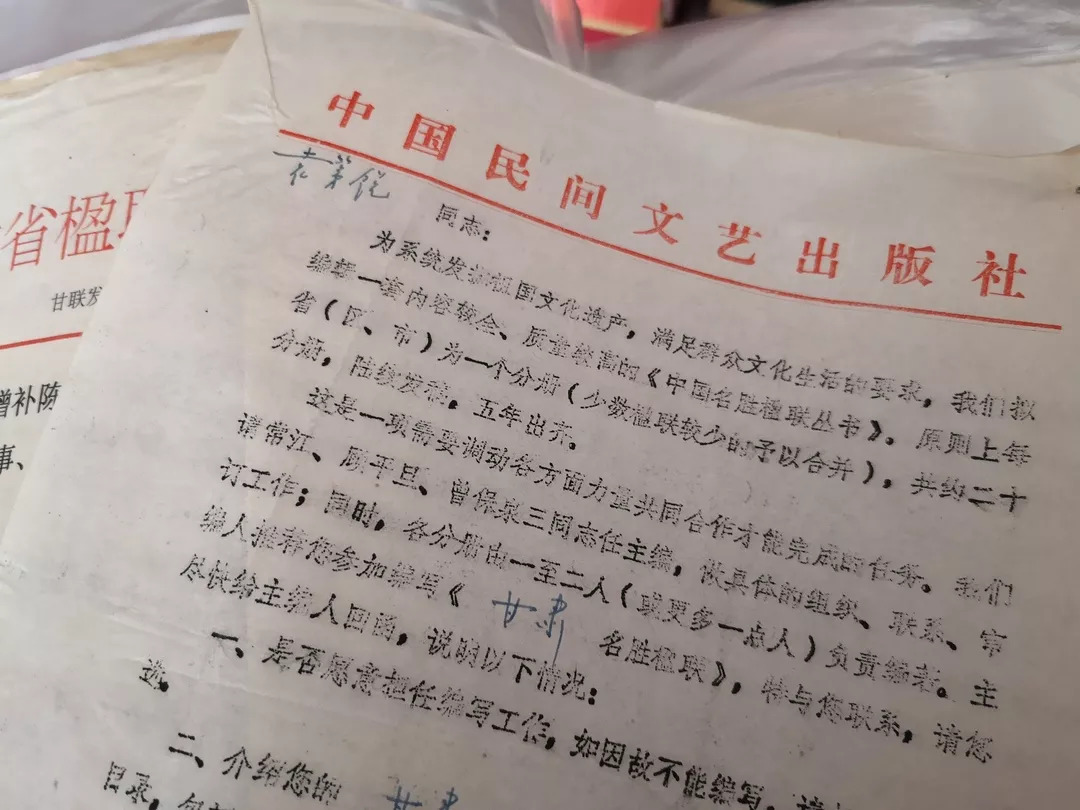 省楹
甘联发
增补陈
事、
中国民间文艺出版社
袁第锐 同志：
为系统发掘祖国文化遗产，满足群众文化生活的要求，我们拟
编辑一套内容较全、质量较高的《中国名胜楹联丛书》。原则上每
省（区、市）为一个分册（少数楹联较少的予以合并），共约二十
分册，陆续发稿，五年出齐。
这是一项需要调动各方面力量共同合作才能完成的任务。我们
请常江、顾平旦、曾保泉三同志任主编，做具体的组织、联系、审
订工作；同时，各分册由一至二人（或更多一点人）负责编著。主
编人推荐您参加编写《甘肃名胜楹联》，特与您联系，请您
尽快给主编人回函，说明以下情况：
一、是否愿意担任编写工作，如因故不能编写，请
选。
二、介绍您的 甘肃
目录，